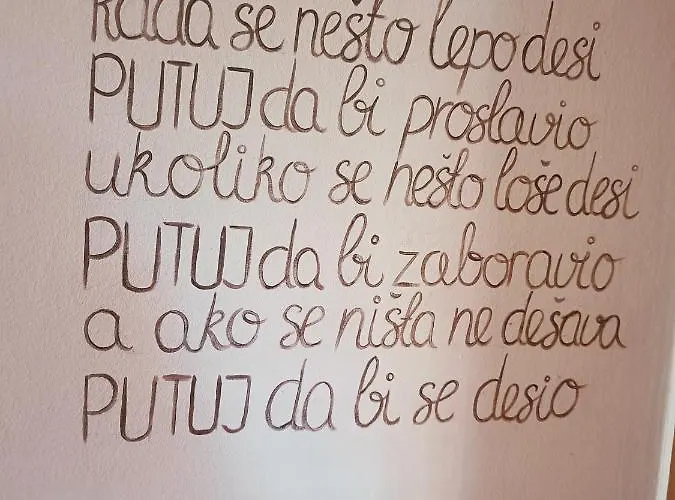 Kada se nešto lepo desi
PUTUJ da bi proslavio
ukoliko se nešto loše desi
PUTUJ da bi zaboravio
a ako se ništa ne dešava
PUTUJ da bi se desio